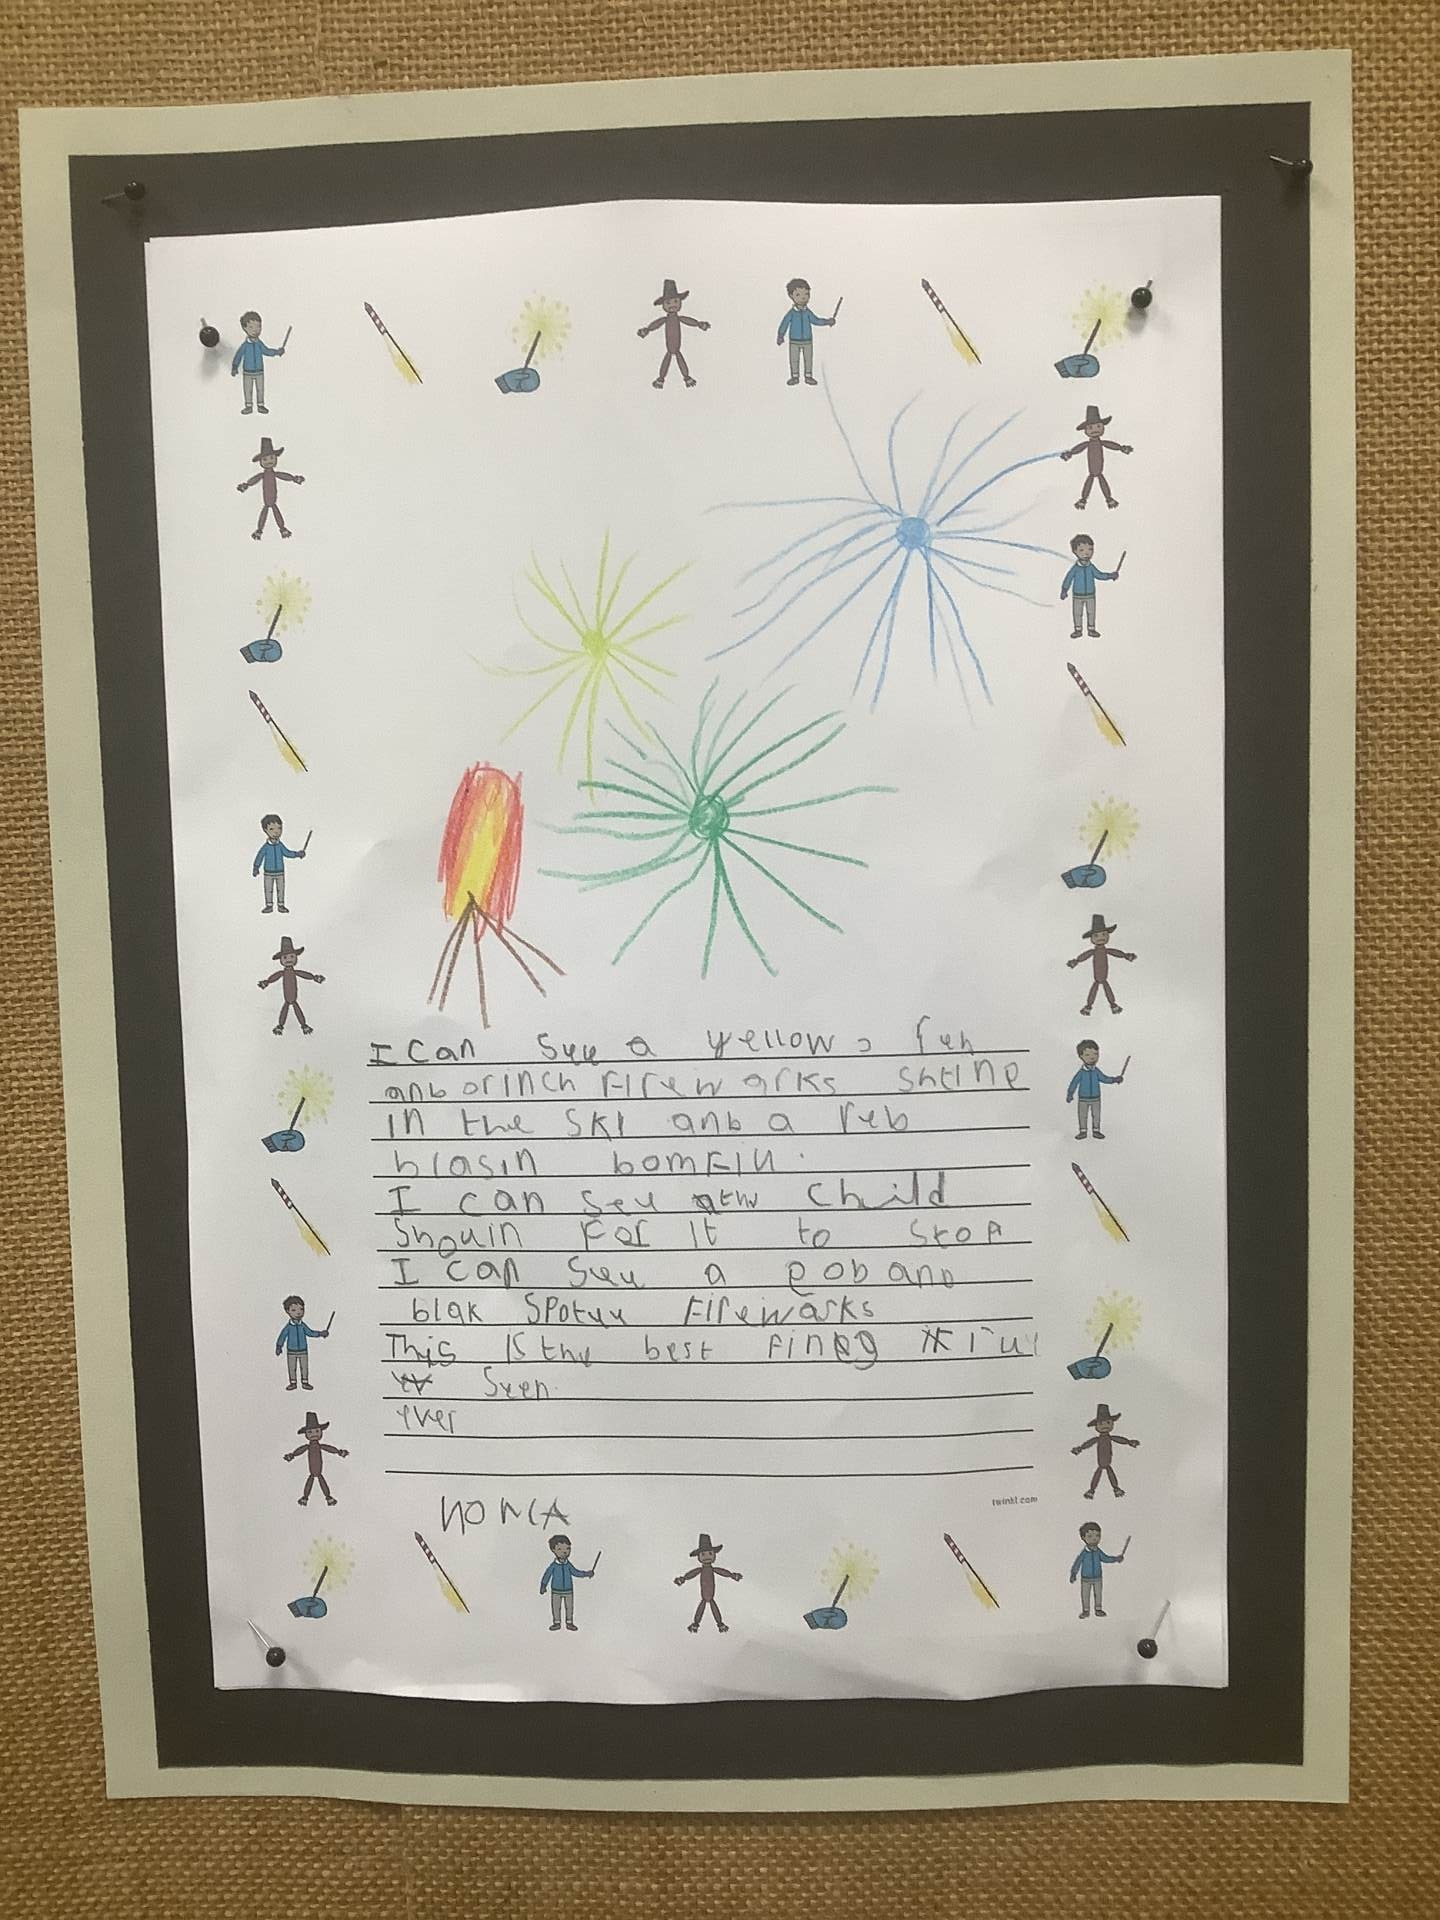 I can see a yellow, 
anb orinch Firewarks
in the SKI anb a reb
blasin bomFiu.
I can see the child
Shouin For it to Stop
I can See a
blak Spotee Firewarks
This is the best
Seen
ever
twinkl.com